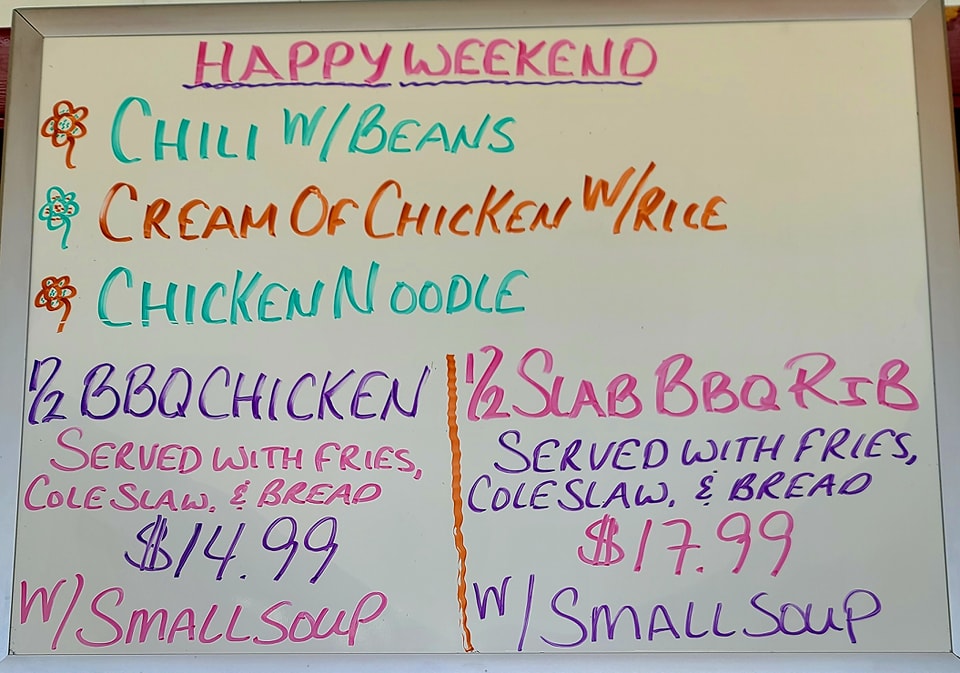 HAPPY WEEKEND
CHILI W/BEANS
CREAM OF CHICKEN W/RICE
CHICKEN NOODLE
1/2 BBQ CHICKEN
SERVED WITH FRIES,
COLE SLAW, & BREAD
$14.99
W/SMALL SOUP
1/2 SLAB BBQ RIB
SERVED WITH FRIES,
COLE SLAW, & BREAD
$17.99
W/SMALL SOUP